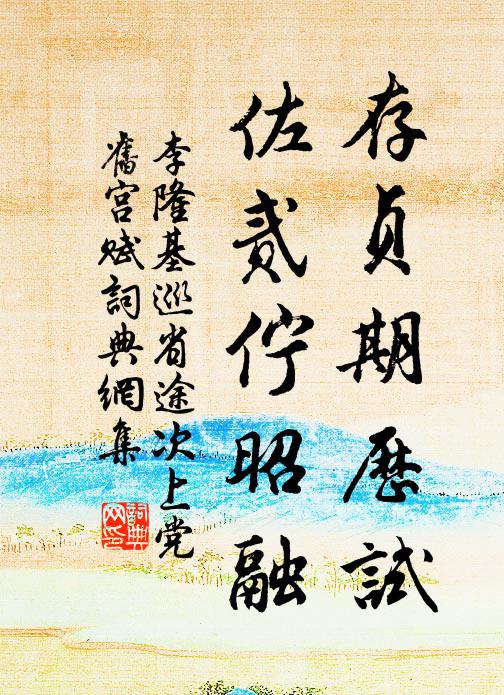 存貞期歷試
佐貳佇昭融
李隆基巡省途次上党
舊宮賦詞典網集
詞典
网印